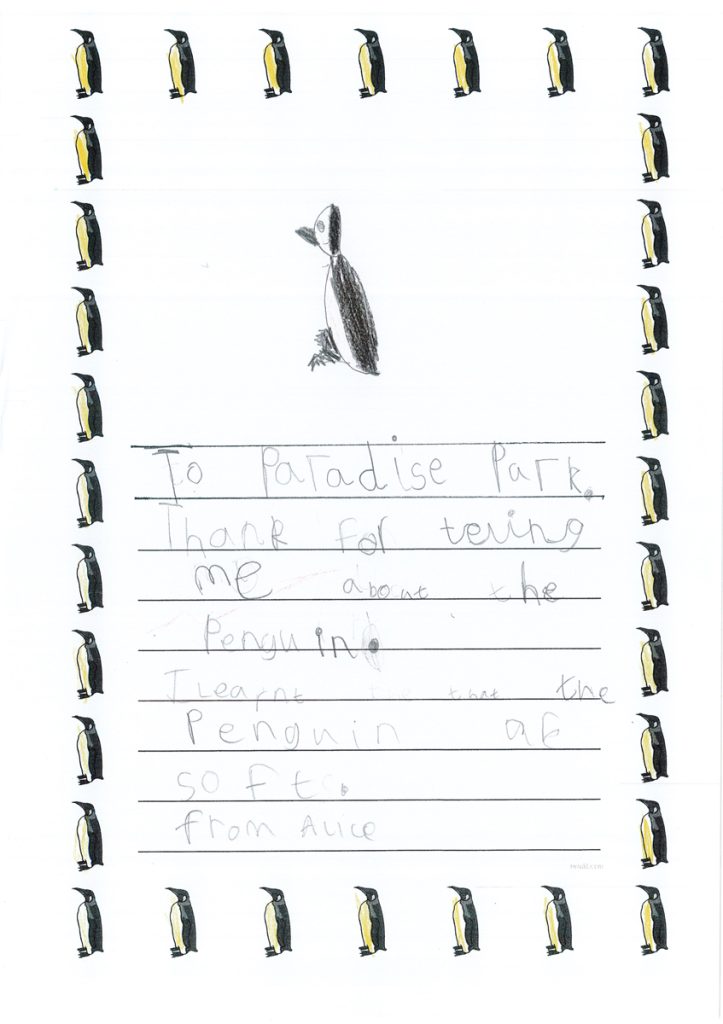 To Paradise Park.
Thank for teling
me about the
Penguin.
I Learnt that the
Penguin at
soft.
from Alice
twinkl.com